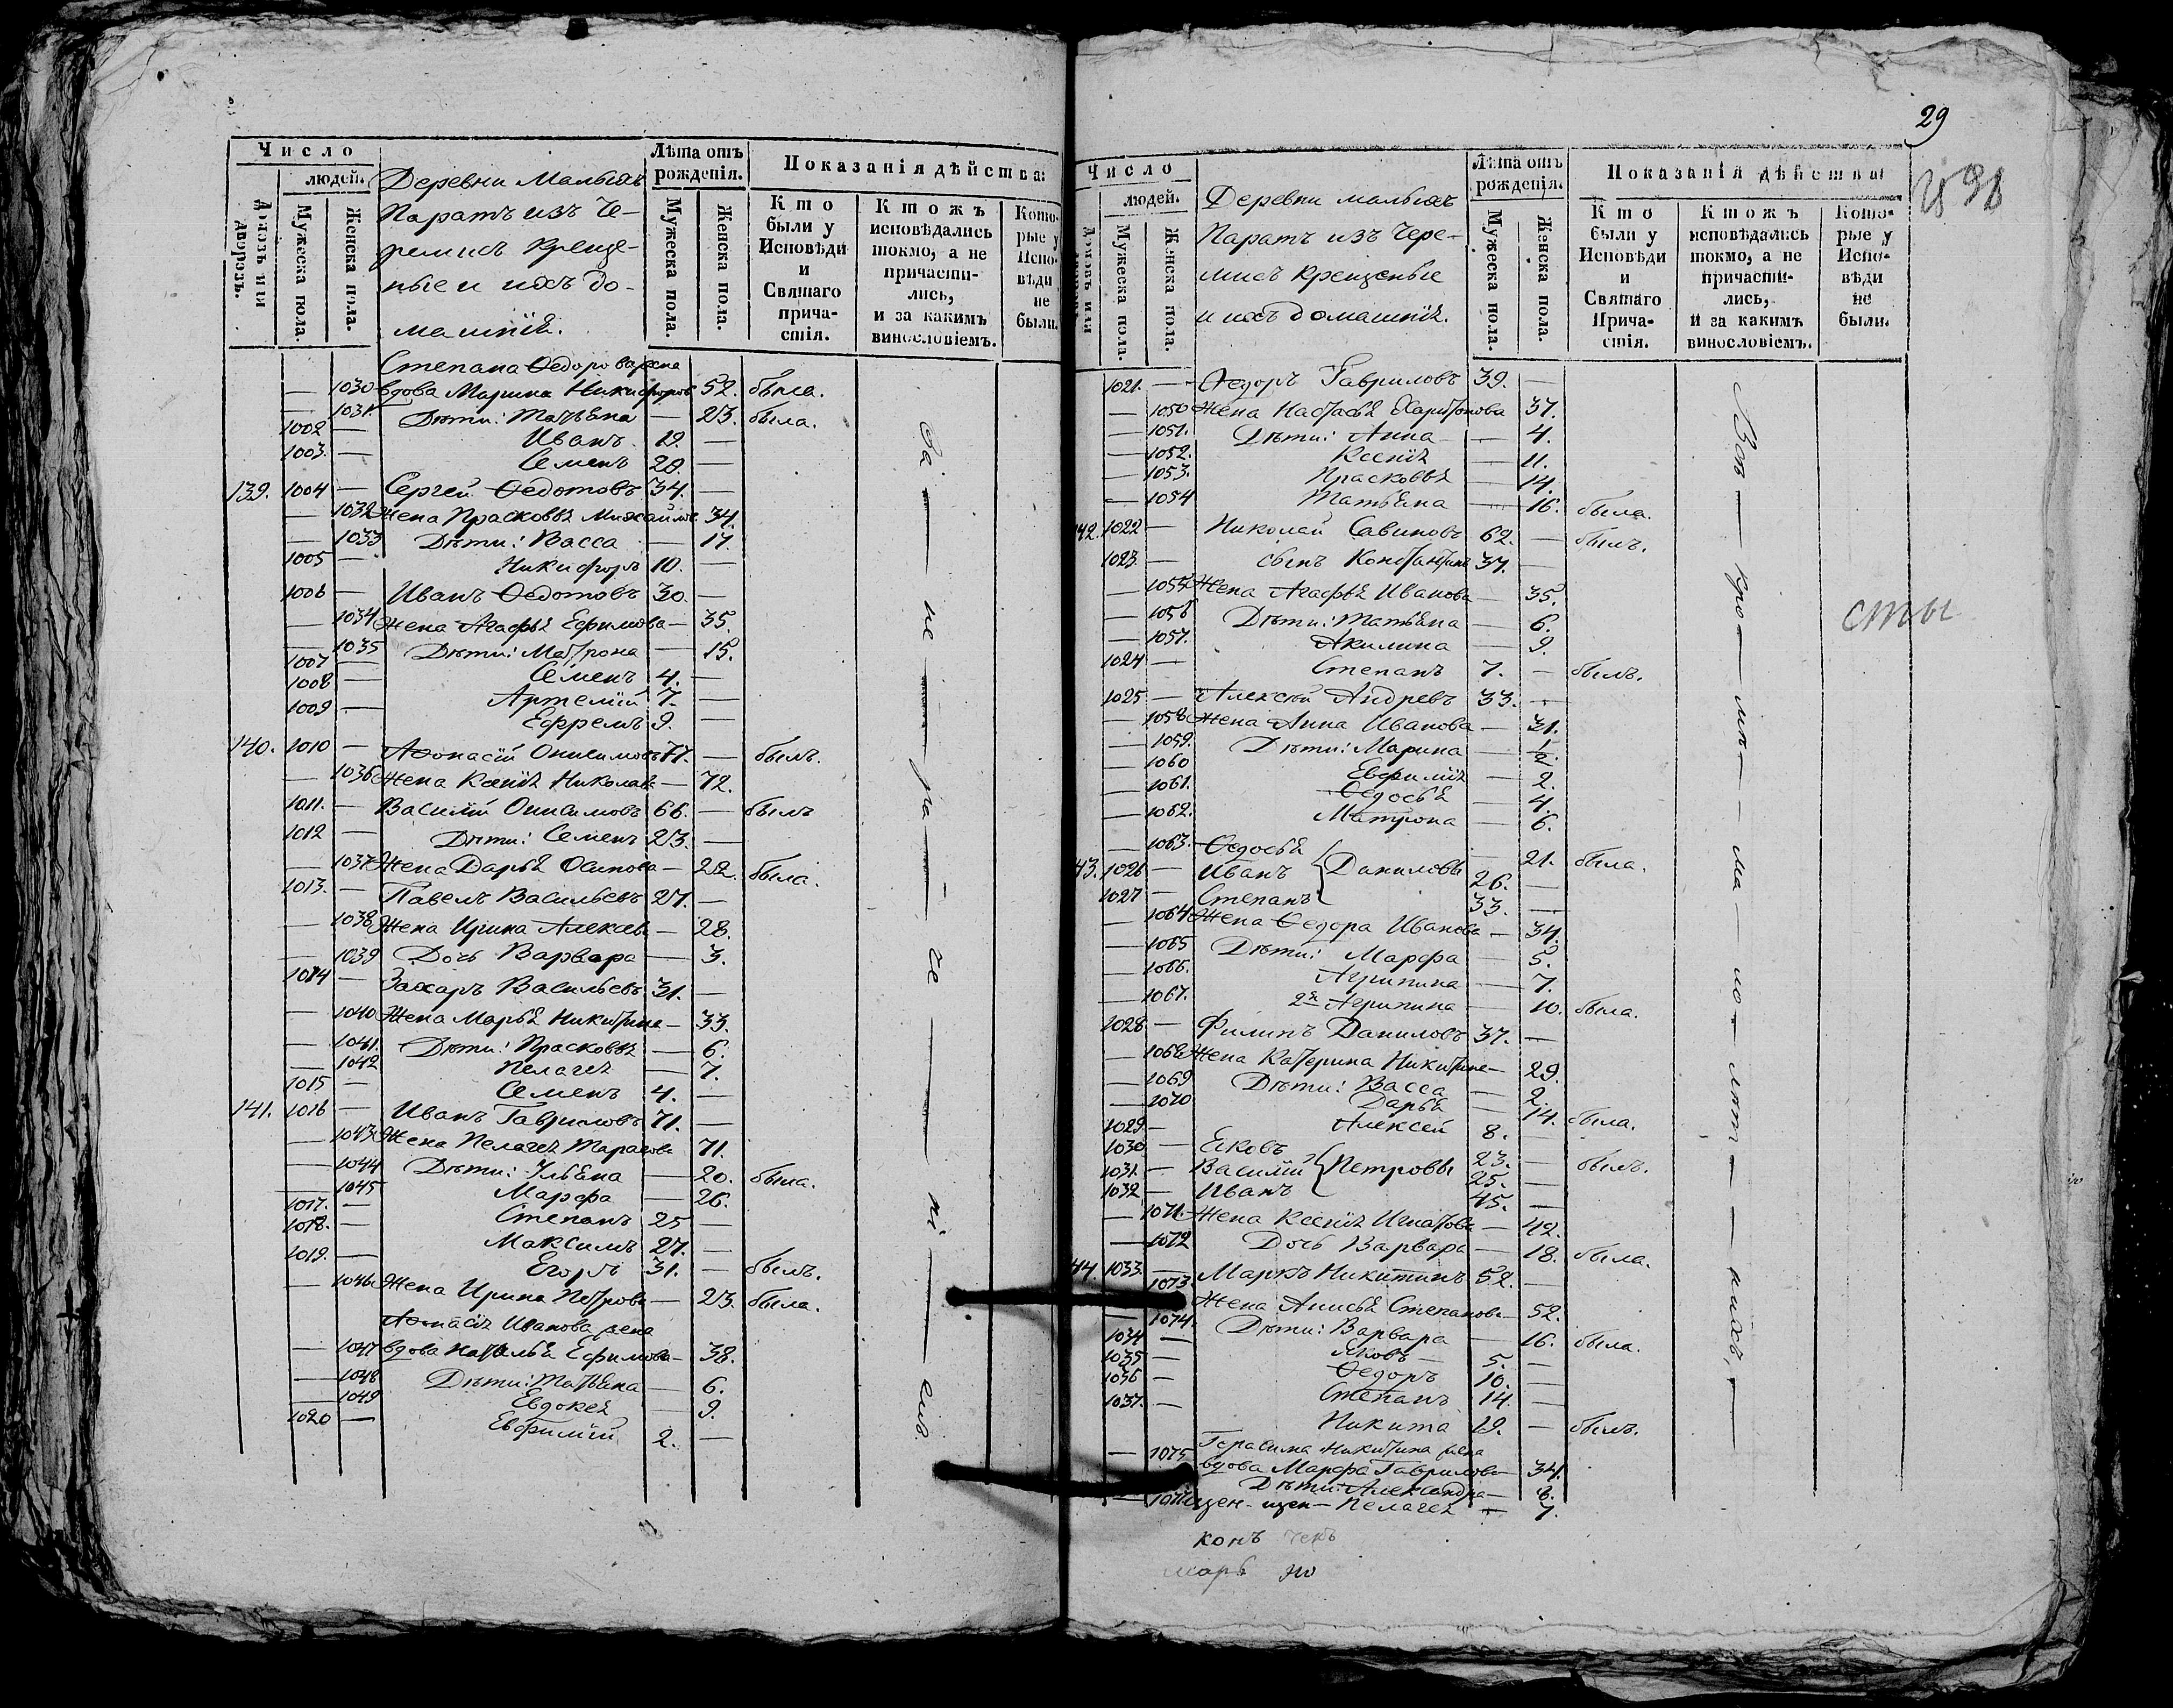 Число
людей.
Домовъ или дворовъ.
Мужеска пола.
Женска пола.
Деревни Малыхъ
Паратъ изъ Че-
ремисъ креще-
ные и ихъ до-
машнія.
Лѣта отъ рожденія.
Мужеска пола.
Женска пола.
Показанія дѣйства:
Кто были у Исповѣди и Святаго причастія.
Ктожъ исповѣдались токмо, а не причастились, и за какимъ винословіемъ.
Которые у Исповѣди не были.
Степана Ѳедорова жена
— 1030 вдова Марина Никифоров 52. была.
— 1031 Дѣти: Татьяна — 23. была.
1002 — Иванъ 19. —
1003. — Семенъ 20. —
139. 1004 — Сергей Ѳедотовъ 34. —
— 1032 Жена Прасковья Михайло 34.
— 1033 Дѣти: Васса — 17.
1005 — Никифоръ 10. —
1006 — Иванъ Ѳедотовъ 30. —
— 1034 Жена Агафья Ефимова — 35.
— 1035 Дѣти: Матрона — 15.
1007 — Семенъ 4. —
1008 — Артемій 7. —
1009 — Ефремъ 9. —
140. 1010 — Аѳонасій Онисимовъ 77. — былъ.
— 1036 Жена Ксенія Николаева — 72.
1011. — Василій Онисимовъ 66. — былъ
1012 — Дѣти: Семенъ 23. —
— 1037 Жена Дарья Осипова — 22. была.
1013. — Павелъ Васильевъ 27. —
— 1038 Жена Ирина Алексѣев — 28.
— 1039 Дочь Варвара — 3.
1014 — Захаръ Васильевъ 31. —
— 1040 Жена Марья Никитина — 33.
— 1041. Дѣти: Прасковья — 6.
— 1042 Пелагея — 7.
1015 — Семенъ 4. —
141. 1016 — Иванъ Гавриловъ 71. —
— 1043 Жена Пелагея Тарасова 71.
— 1044 Дѣти: Ульяна — 20. была.
— 1045 Марфа — 26.
1017. — Степанъ 25 —
1018. — Максимъ 27. —
1019. — Егоръ 31. — былъ.
— 1046 Жена Ирина Петрова — 23. была.
Аѳонасія Иванова жена
— 1047 вдова Наталья Ефимова — 38.
— 1048 Дѣти: Татьяна — 6.
— 1049 Евдокея 9.
1020 — Евфимій 2. —
За — не — ра — че — ні — емъ.
29
Число
людей.
Домовъ или
Мужеска пола.
Женска пола.
Деревни малыхъ
Паратъ изъ Чере-
мисъ крещеные
и ихъ домашнія.
Лѣта отъ рожденія.
Мужеска пола.
Женска пола.
Показанія дѣйства
Кто были у Исповѣди и Святаго Причастія.
Ктожъ исповѣдались токмо, а не причастились, и за какимъ винословіемъ.
Которые у Исповѣди не были.
1021. — Ѳедоръ Гавриловъ 39. —
— 1050 Жена Настасья Харитонова 37.
— 1051. Дѣти: Анна — 4.
— 1052. Ксенія — 11.
— 1053. Прасковья — 14.
— 1054 Татьяна — 16. была.
42. 1022 — Николай Савиновъ 62. — былъ.
1023. — сынъ Константинъ 37. —
— 1055 Жена Агафья Иванова — 35.
— 1056 Дѣти: Татьяна — 6.
— 1057. Акилина — 9.
1024 — Степанъ 7. — былъ.
1025 — Алексѣй Андревъ 33. —
— 1058 Жена Анна Иванова — 31.
— 1059. Дѣти: Марина — 1/2.
— 1060 Евфимія — 2.
— 1061. Ѳедосья — 4.
— 1062. Матрона — 6.
— 1063. Ѳедосья — 21. была.
43. 1026 — Иванъ Даниловы 26. —
1027 — Степанъ 33. —
— 1064 Жена Ѳедора Иванова — 34.
— 1065 Дѣти: Марфа — 5.
— 1066. Агрипина — 7.
— 1067. 2я Агрипина — 10. была.
1028 — Филипъ Даниловъ 37. —
— 1068 Жена Катерина Никитина — 29.
— 1069 Дѣти: Васса — 2.
— 1070 Дарья — 14. была.
1029 — Алексей 8. —
1030 — Яковъ 23. — былъ.
1031. — Василій Петровы 25. —
1032 — Иванъ 45. —
— 1071. Жена Ксенія Игнатова — 42.
— 1072 Дочь Варвара — 18. была.
44. 1033. — Маркъ Никитинъ 52. —
1073. Жена Анисья Степанова — 52.
— 1074. Дѣти: Варвара — 16. была.
1034 — Яковъ — 5. —
1035 — Ѳедоръ 10. —
1036 — Степанъ 14. —
1037. — Никита 19. — былъ.
Герасима Никитина жена
— 1075 вдова Марфа Гаврилова — 34.
Дѣти: Александра — 3.
Пелагея — 7.
Всѣ — кро — мѣ — ма — ло — лѣт — нихъ, —
сты